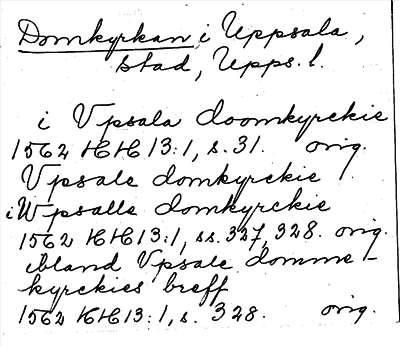 Domkyrkan i Uppsala,
stad, Upps. l.
i Vpsala doomkyrckie
1562 HH 13:1, s. 31. orig.
Vpsale domkyrckie
i Wpsalla domkyrckie
1562 HH 13:1, ss. 327, 328. orig.
ibland Vpsale domme-
kyrckies breff
1562 HH 13:1, s. 328. orig.